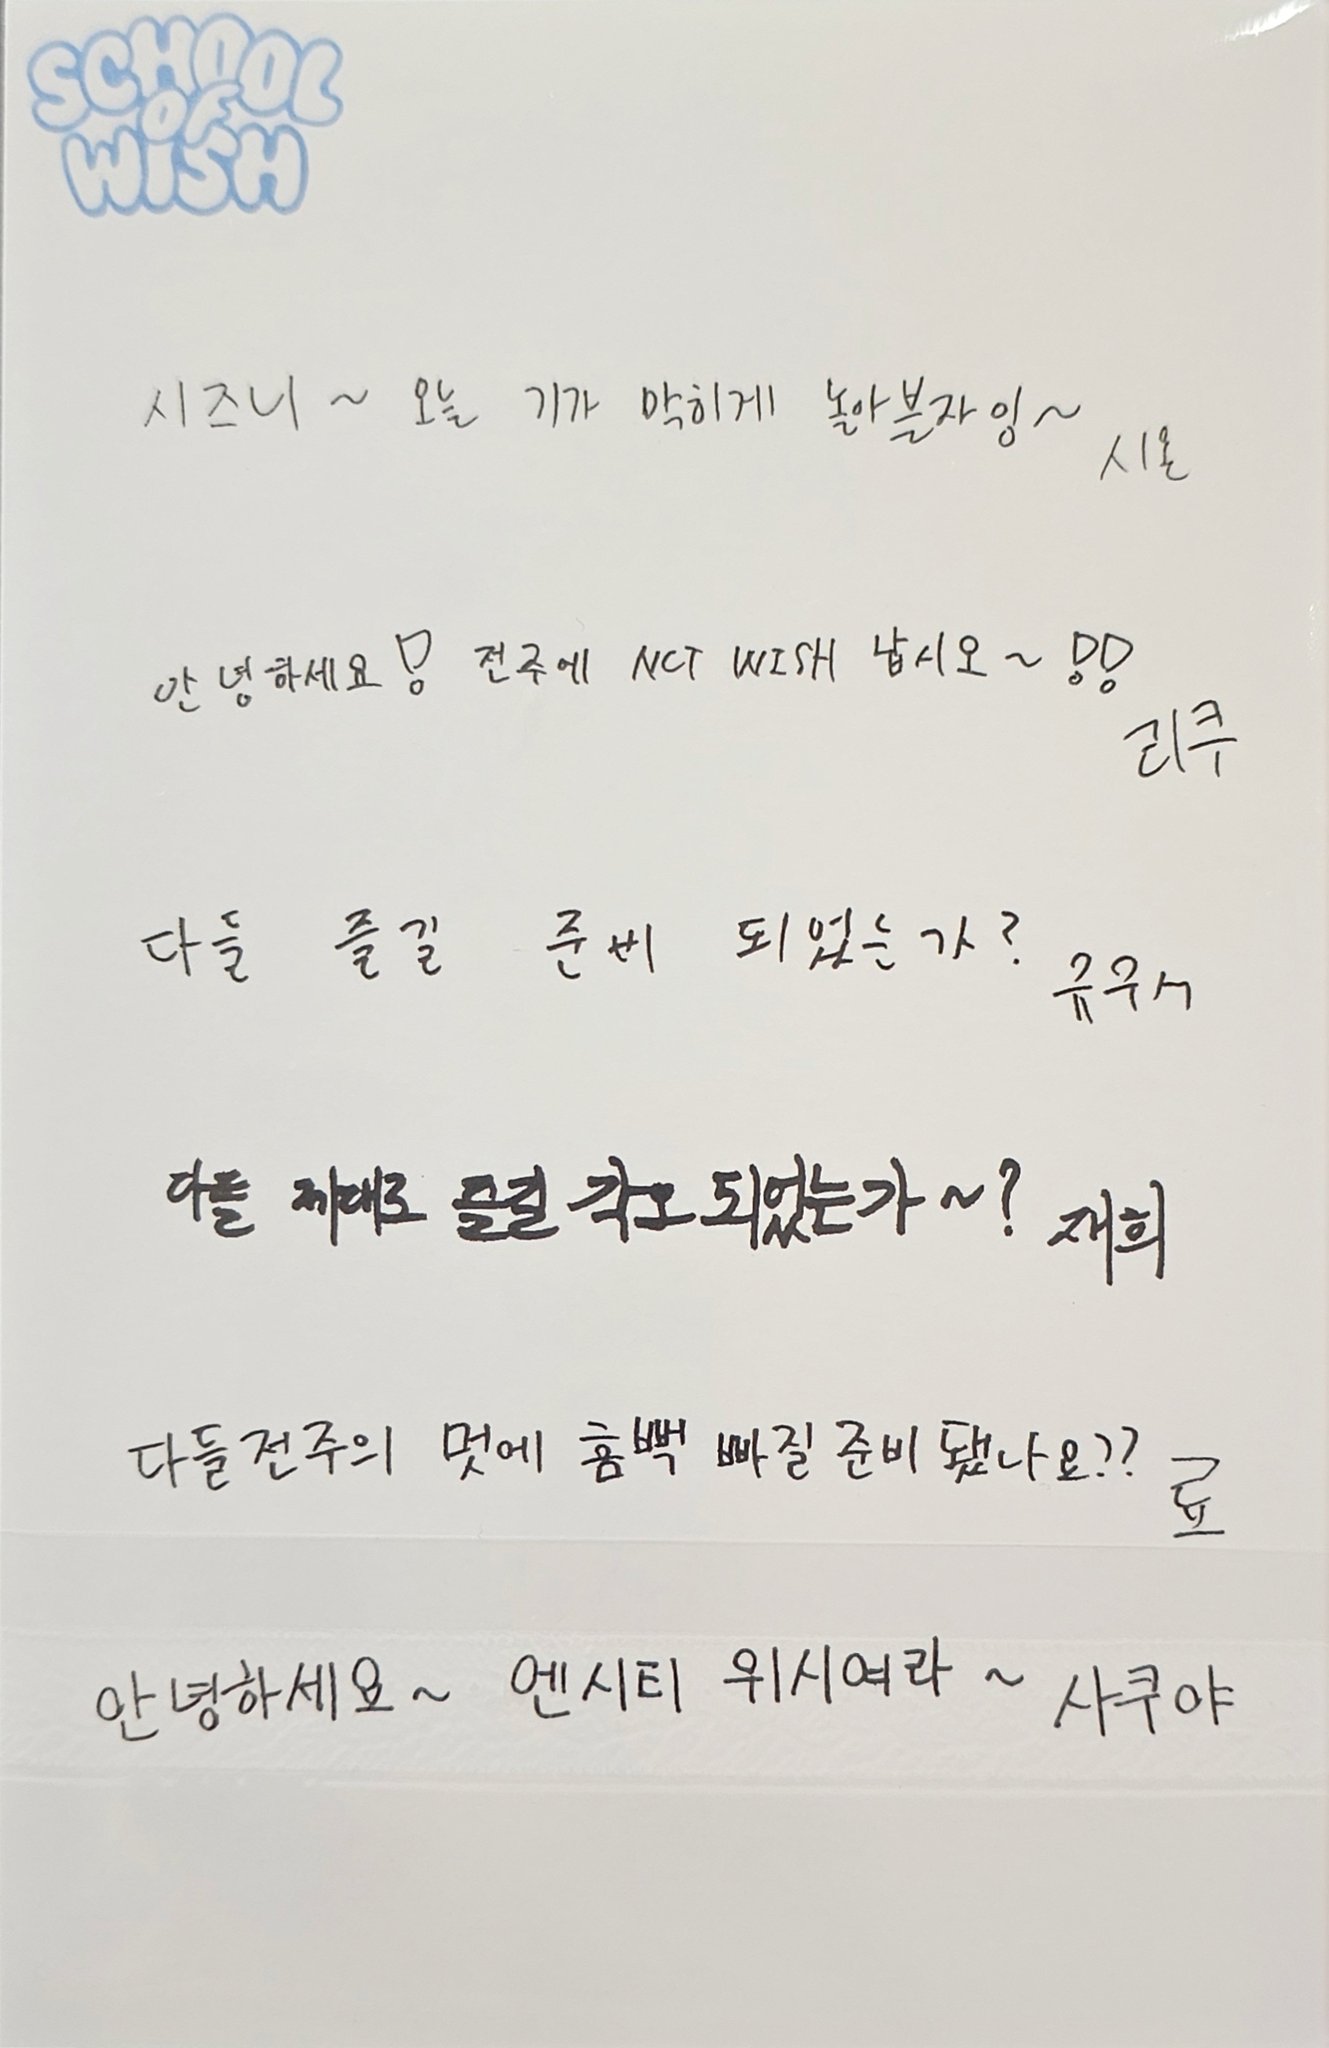 SCHOOL
OF
WISH
시즈니~ 오늘 기가 막히게 놀아볼자잉~ 시온
안녕하세요! 전주에 NCT WISH 납시오~!! 리쿠
다들 즐길 준비 되었는가? 유우시
다들 제대로 즐길 각오 되었는가~? 재희
다들 전주의 멋에 흠뻑 빠질 준비 됐나요?? 료
안녕하세요~ 엔시티 위시여라~ 사쿠야